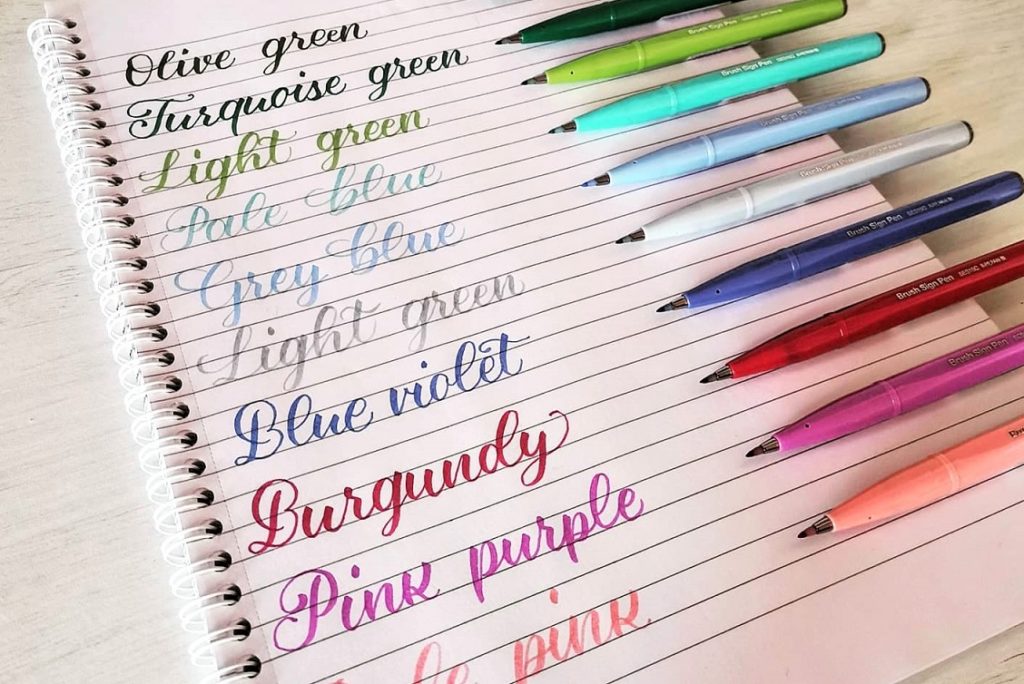 Olive green
Turquoise green
Light green
Pale blue
Grey blue
Light green
Blue violet
Burgundy
Pink purple
pink
Brush Sign Pen
Brush Sign Pen
Brush Sign Pen
Brush Sign Pen
Brush Sign Pen
Brush Sign Pen
Brush Sign Pen